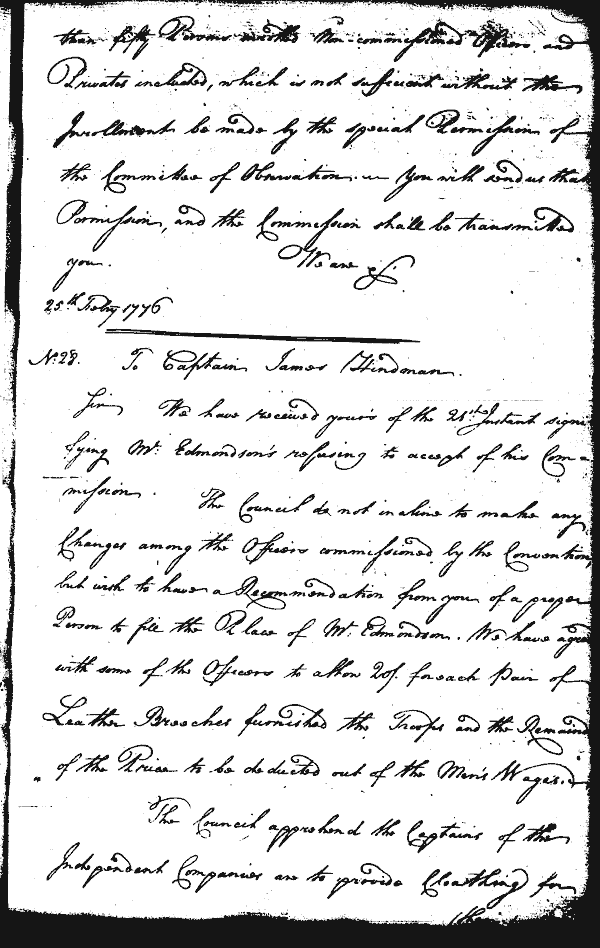 than fifty Persons enrolled Non-commissioned Officers and
Privates included, which is not sufficient without the
Inrollment be made by the special Permission of
the Committee of Observation. — You will send us that
Permission, and the Commission shall be transmitted
you. We are &c.
25th Feby 1776
No. 28. To Captain James Hindman.
Sir We have received yours of the 21st Instant signi
fying Mr. Edmondson's refusing to accept of his Com=
mission.
The Council do not incline to make any
Changes among the Officers commissioned by the Convention,
but wish to have a Recommendation from you of a proper
Person to fill the Place of Mr. Edmondson. We have agre
with some of the Officers to allow 20s. for each Pair of
Leather Breeches furnished the Troops and the Remaind
of the Price to be deducted out of the Men's Wages. —
The Council apprehend the Captains of the
Independent Companies are to provide Cloathing for
their